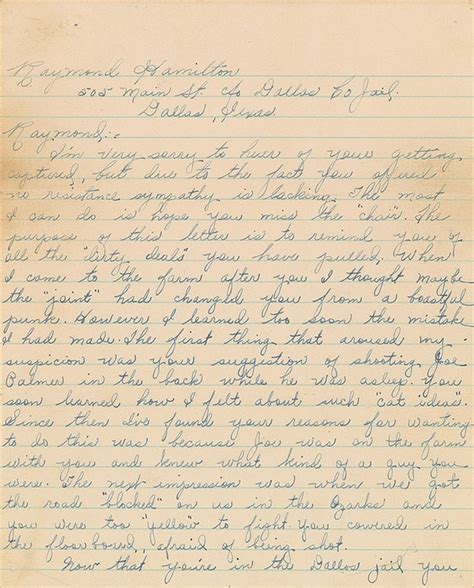 Raymond Hamilton
505 Main St. c/o Dallas Co Jail.
Dallas, Texas
Raymond:-
I'm very sorry to hear of your getting
captured, but due to the fact you offered
no resistance sympathy is lacking. The most
I can do is hope you miss the "chair". The
purpose of this letter is to remind you of
all the "dirty deals" you have pulled. When
I came to the farm after you I thought maybe
the "joint" had changed you from a boastful
punk. However I learned too soon the mistake
I had made. The first thing that aroused my
suspicion was your suggistion of shooting Joe
Palmer in the back while he was asleep. You
soon learned how I felt about such "cat ideas".
Since then I've found your reasons for wanting
to do this was because Joe was on the farm
with you and knew what kind of a guy you
were. The next impression was when we got
the road "blocked" on us in the Ozarks and
you were too "yellow" to fight. You cowered in
the floorboard, afraid of being shot.
Now that you're in the Dallas jail you